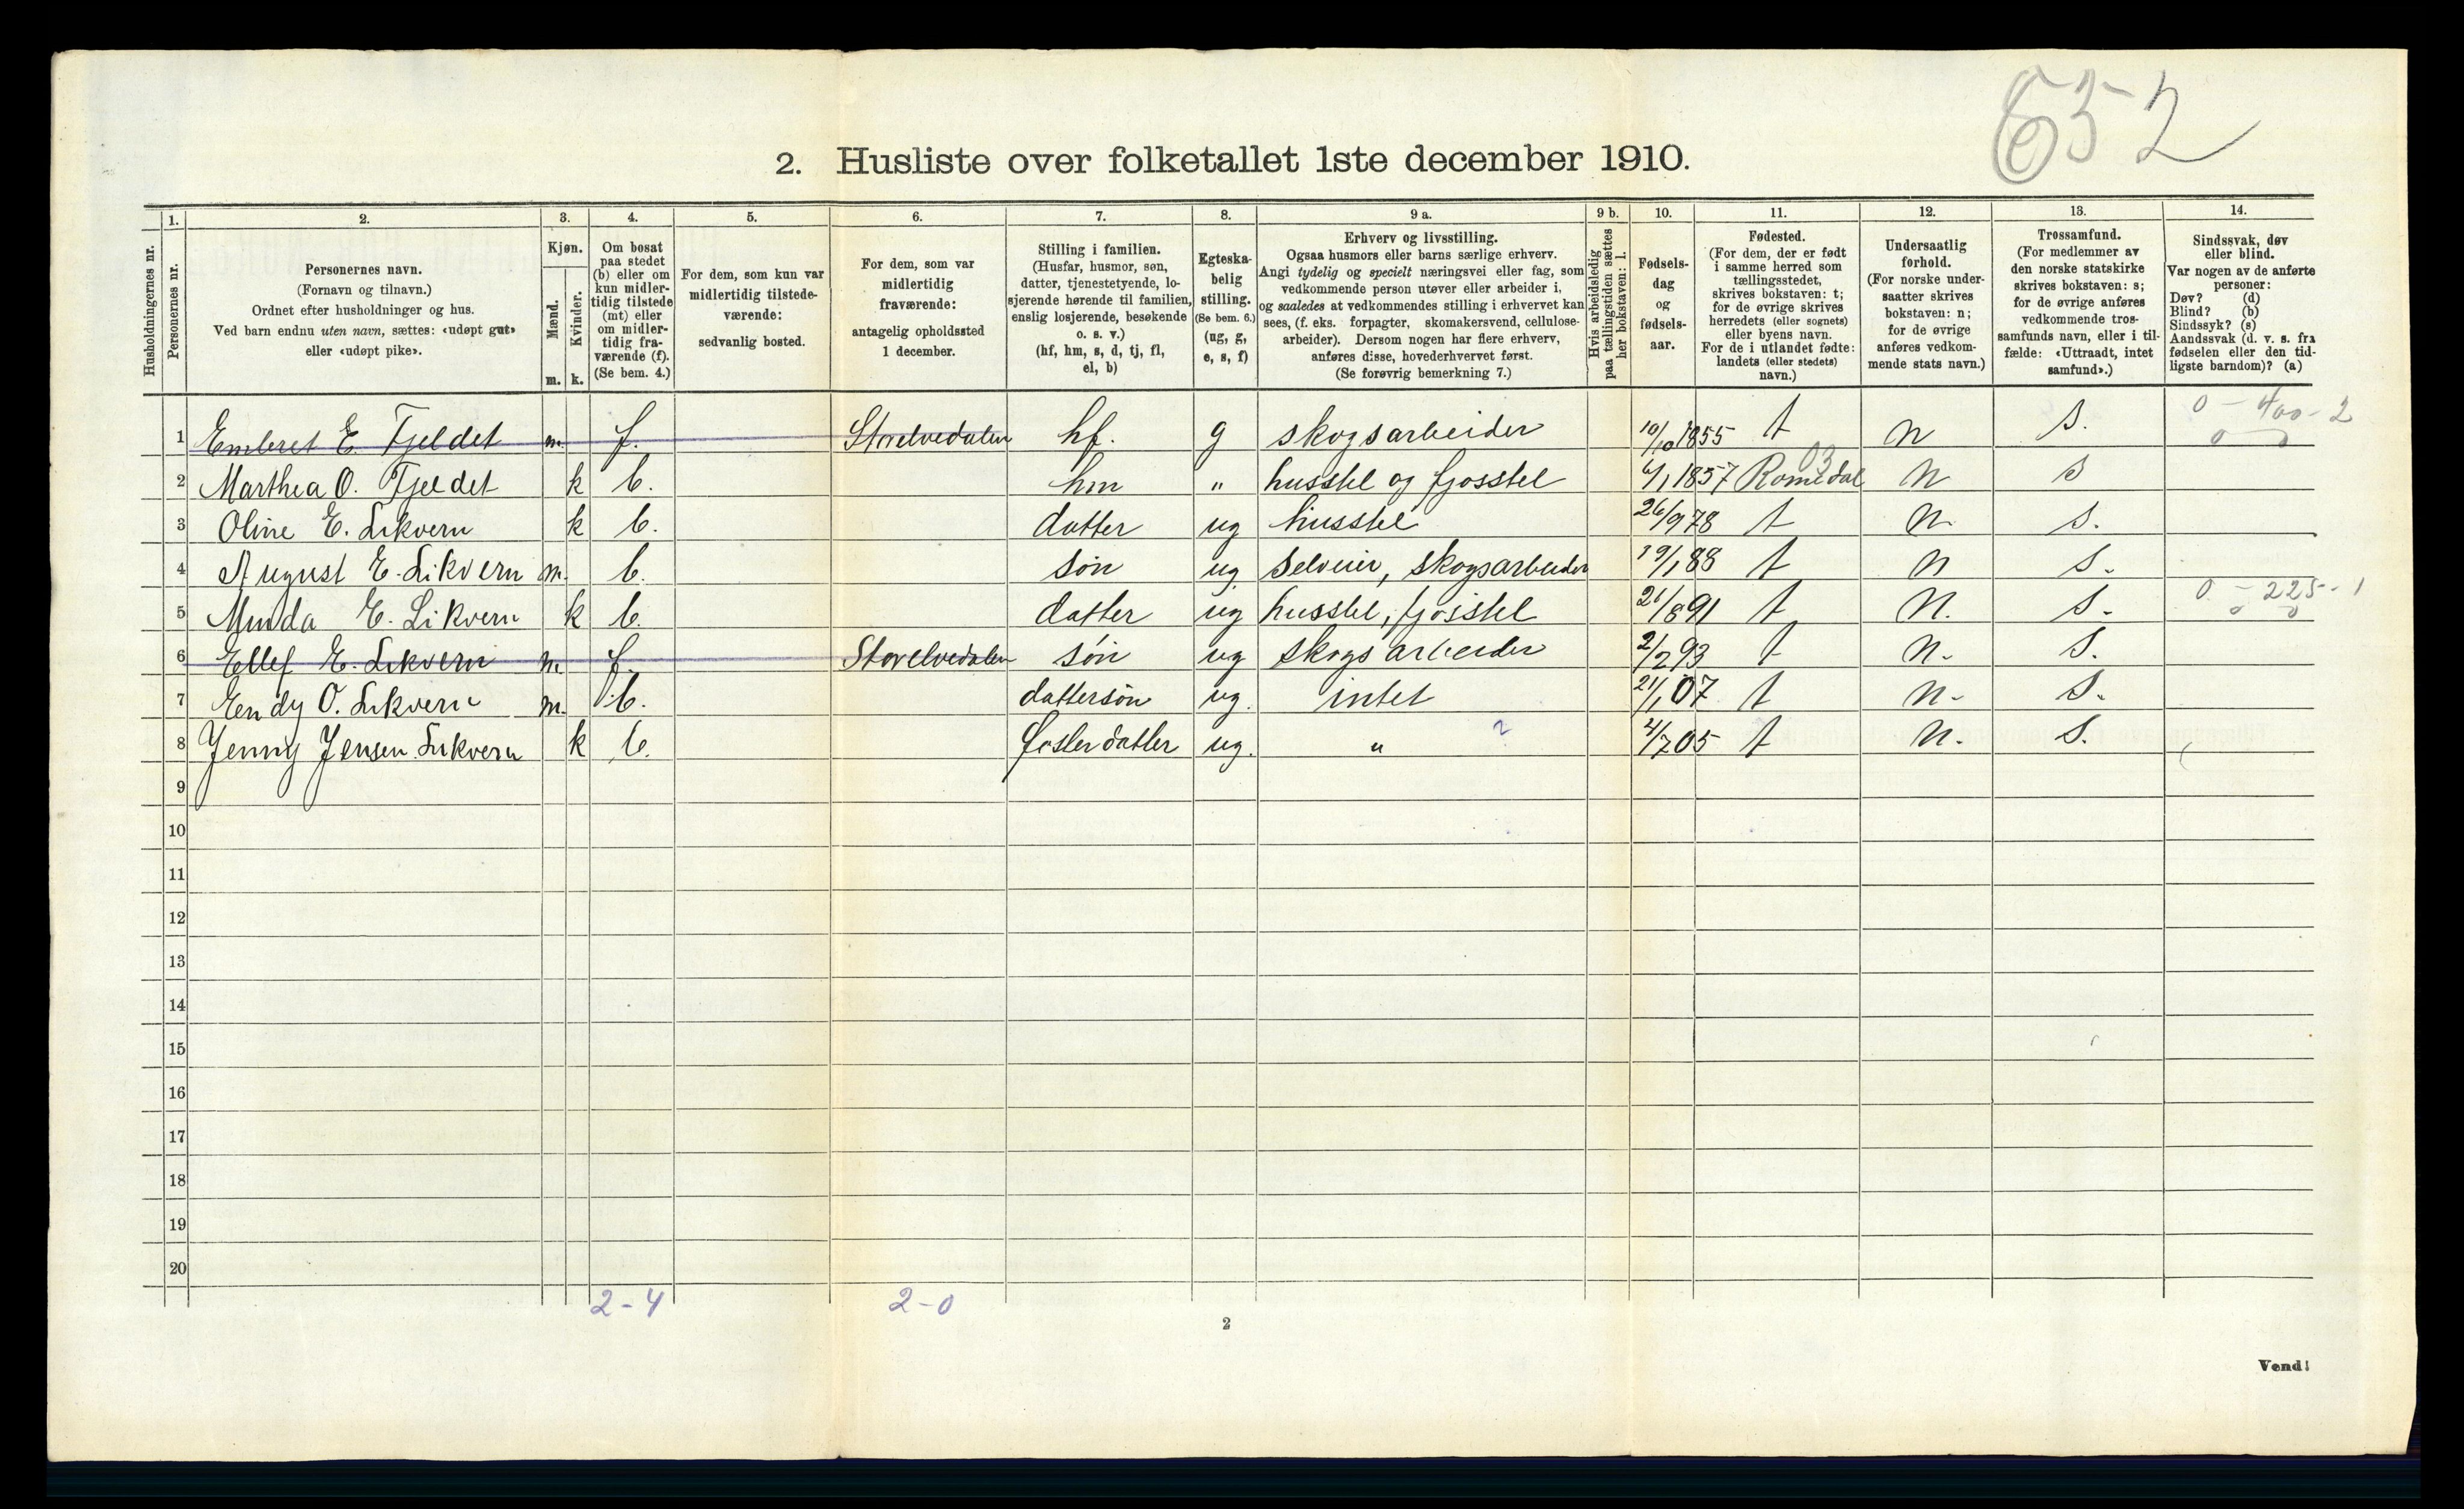 652
2. Husliste over folketallet 1ste december 1910.
Husholdningernes nr.
1.
Personernes nr.
2.
Personernes navn.
(Fornavn og tilnavn.)
Ordnet efter husholdninger og hus.
Ved barn endnu uten navn, sættes: «udøpt gut»
eller «udøpt pike».
3.
Kjøn.
Mænd.
Kvinder.
m. k.
4.
Om bosat
paa stedet
(b) eller om
kun midler-
tidig tilstede
(mt) eller
om midler-
tidig fra-
værende (f).
(Se bem. 4.)
5.
For dem, som kun var
midlertidig tilstede-
værende:
sedvanlig bosted.
6.
For dem, som var
midlertidig
fraværende:
antagelig opholdssted
1 december.
7.
Stilling i familien.
(Husfar, husmor, søn,
datter, tjenestetyende, lo-
sjerende hørende til familien,
enslig losjerende, besøkende
o. s. v.)
(hf, hm, s, d, tj, fl,
el, b)
8.
Egteska-
belig
stilling.
(Se bem. 6.)
(ug, g,
e, s, f)
9 a.
Erhverv og livsstilling.
Ogsaa husmors eller barns særlige erhverv.
Angi tydelig og specielt næringsvei eller fag, som
vedkommende person utøver eller arbeider i,
og saaledes at vedkommendes stilling i erhvervet kan
sees, (f. eks. forpagter, skomakersvend, cellulose-
arbeider). Dersom nogen har flere erhverv,
anføres disse, hovederhvervet først.
(Se forøvrig bemerkning 7.)
9 b.
Hvis arbeidsledig
paa tællingstiden sættes
her bokstaven: l.
10.
Fødsels-
dag
og
fødsels-
aar.
11.
Fødested.
(For dem, der er født
i samme herred som
tællingsstedet,
skrives bokstaven: t;
for de øvrige skrives
herredets (eller sognets)
eller byens navn.
For de i utlandet fødte:
landets (eller stedets)
navn.)
12.
Undersaatlig
forhold.
(For norske under-
saatter skrives
bokstaven: n;
for de øvrige
anføres vedkom-
mende stats navn.)
13.
Trossamfund.
(For medlemmer av
den norske statskirke
skrives bokstaven: s;
for de øvrige anføres
vedkommende tros-
samfunds navn, eller i til-
fælde: «Uttraadt, intet
samfund».)
14.
Sindssvak, døv
eller blind.
Var nogen av de anførte
personer:
Døv? (d)
Blind? (b)
Sindssyk? (s)
Aandssvak (d. v. s. fra
fødselen eller den tid-
ligste barndom)? (a)
1 Embret E. Fjeldet m. f. Storelvedalen hf. g skogsarbeider 10/10 1855 t n s. 0 - 400 - 2
2 Marthea O. Fjeldet k b. hm " husstel og fjosstel 6/1 1857 Romedal 03 n s
3 Oline E. Likvern k b. datter ug husstel 26/9 78 t n. s.
4 August E. Likvern m. b. søn ug selveier, skogsarbeider 19/1 88 t n s.
5 Minda E. Likvern k b. datter ug husstel, fjosstel 21/8 91 t n. s. 0 - 225 - 1
6 Ellef E. Likvern m. f. Storelvedalen søn ug skogsarbeider 2/2 93 t n. s.
7 Endy O. Likvern m. b. dattersøn ug. intet 21/1 07 t n. s.
8 Jenny Jensen Likvern k b. fosterdatter ug. " ? 4/7 05 t n. s.
9
10
11
12
13
14
15
16
17
18
19
20
2-4 2-0
2
Vend!